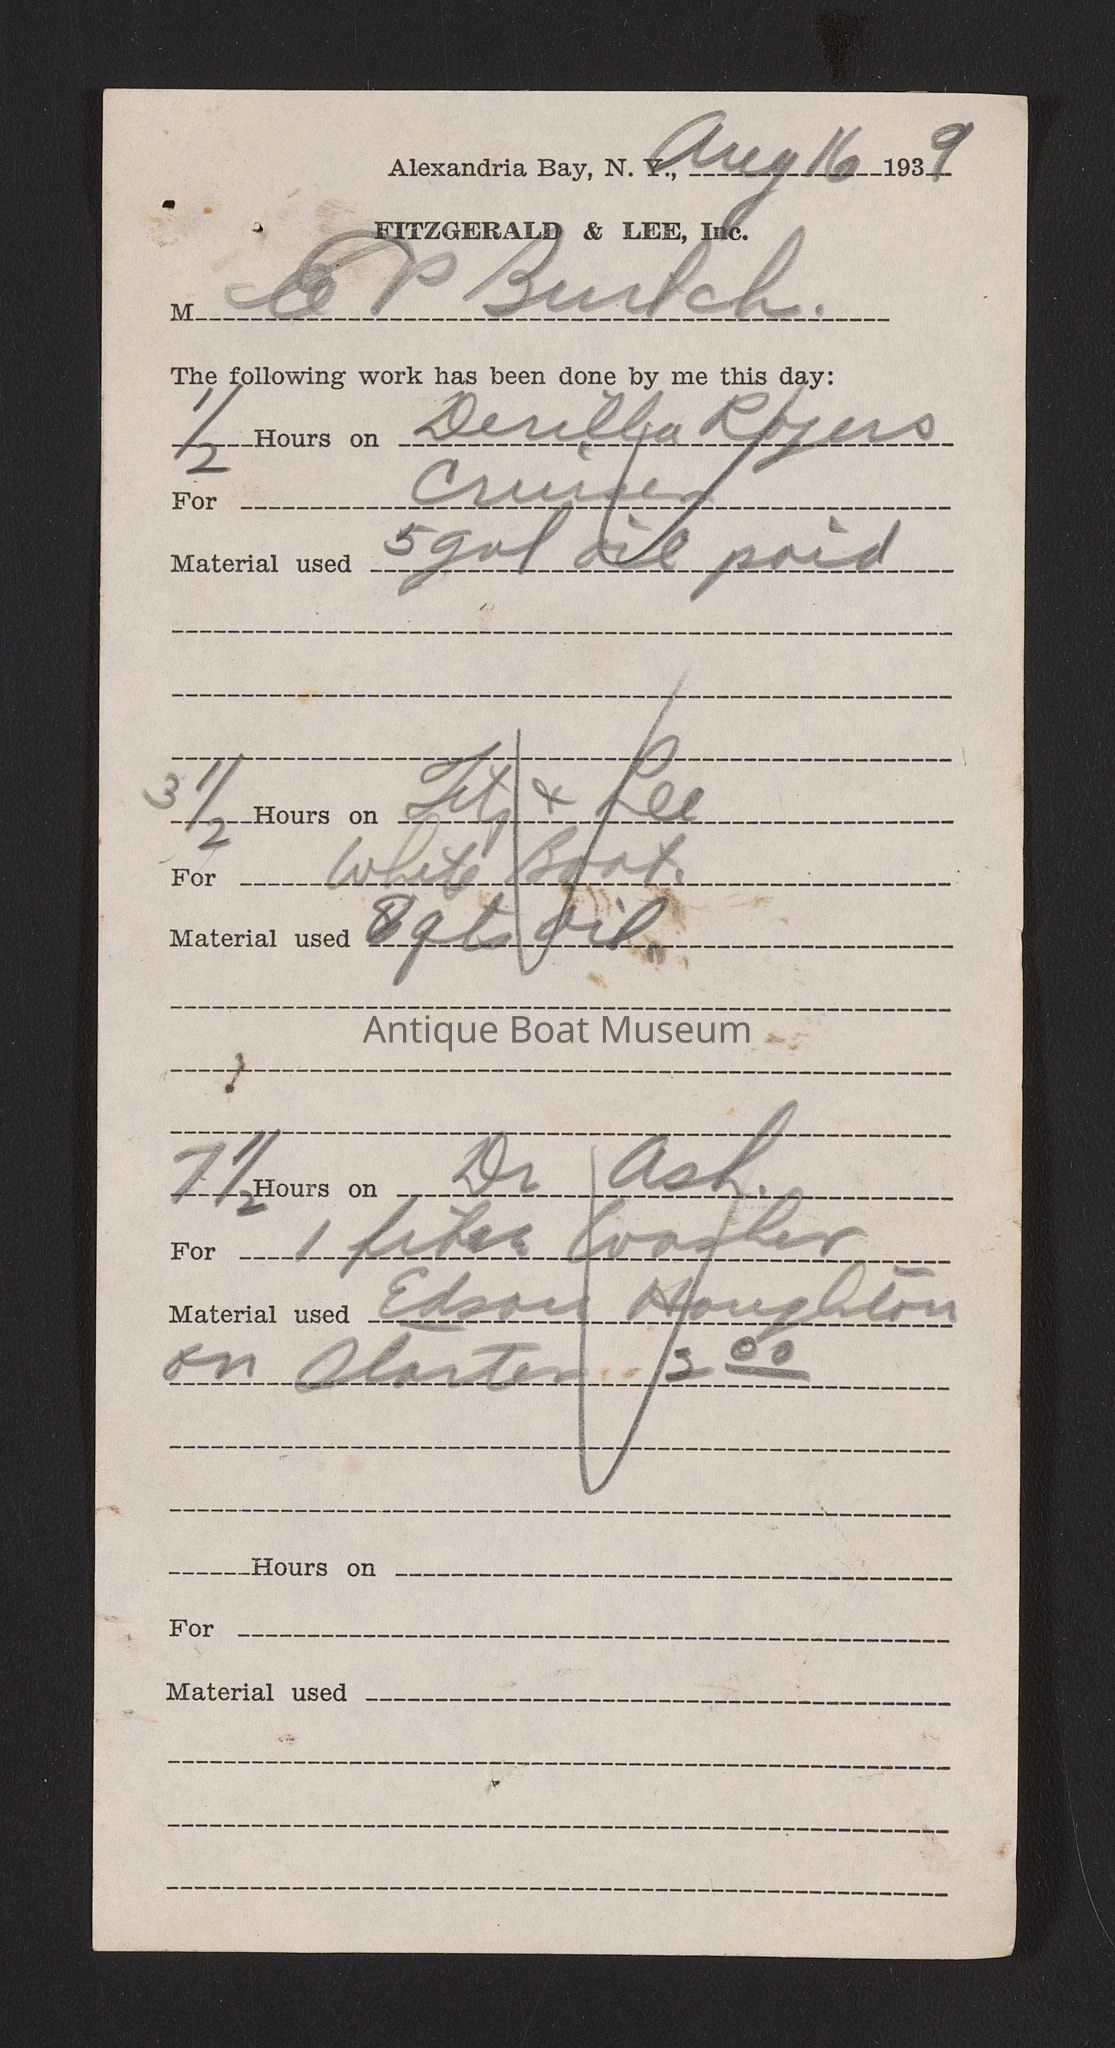 Alexandria Bay, N. Y., Aug 16 1939
FITZGERALD & LEE, Inc.
M E P Burtch.
The following work has been done by me this day:
1/2 Hours on Rogers
For Cruiser
Material used 5 gal oil paid
3 1/2 Hours on Fitz & Lee
For White Boat.
Material used 8 qts oil
Antique Boat Museum
7 1/2 Hours on Dr Ash.
For 1 washer
Material used Edson Houghton
on Starter 3 00
Hours on
For
Material used